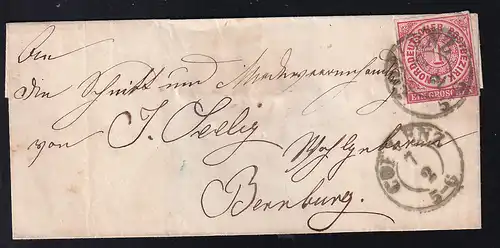 An
die Schnitt und Modewaarenhandlg
von J. Seelig
Wohlgeboren
Bernburg.
NORDDEUTSCHER POSTBEZIRK
1
EIN GROSCHEN
COBLENZ
7
2
5-6